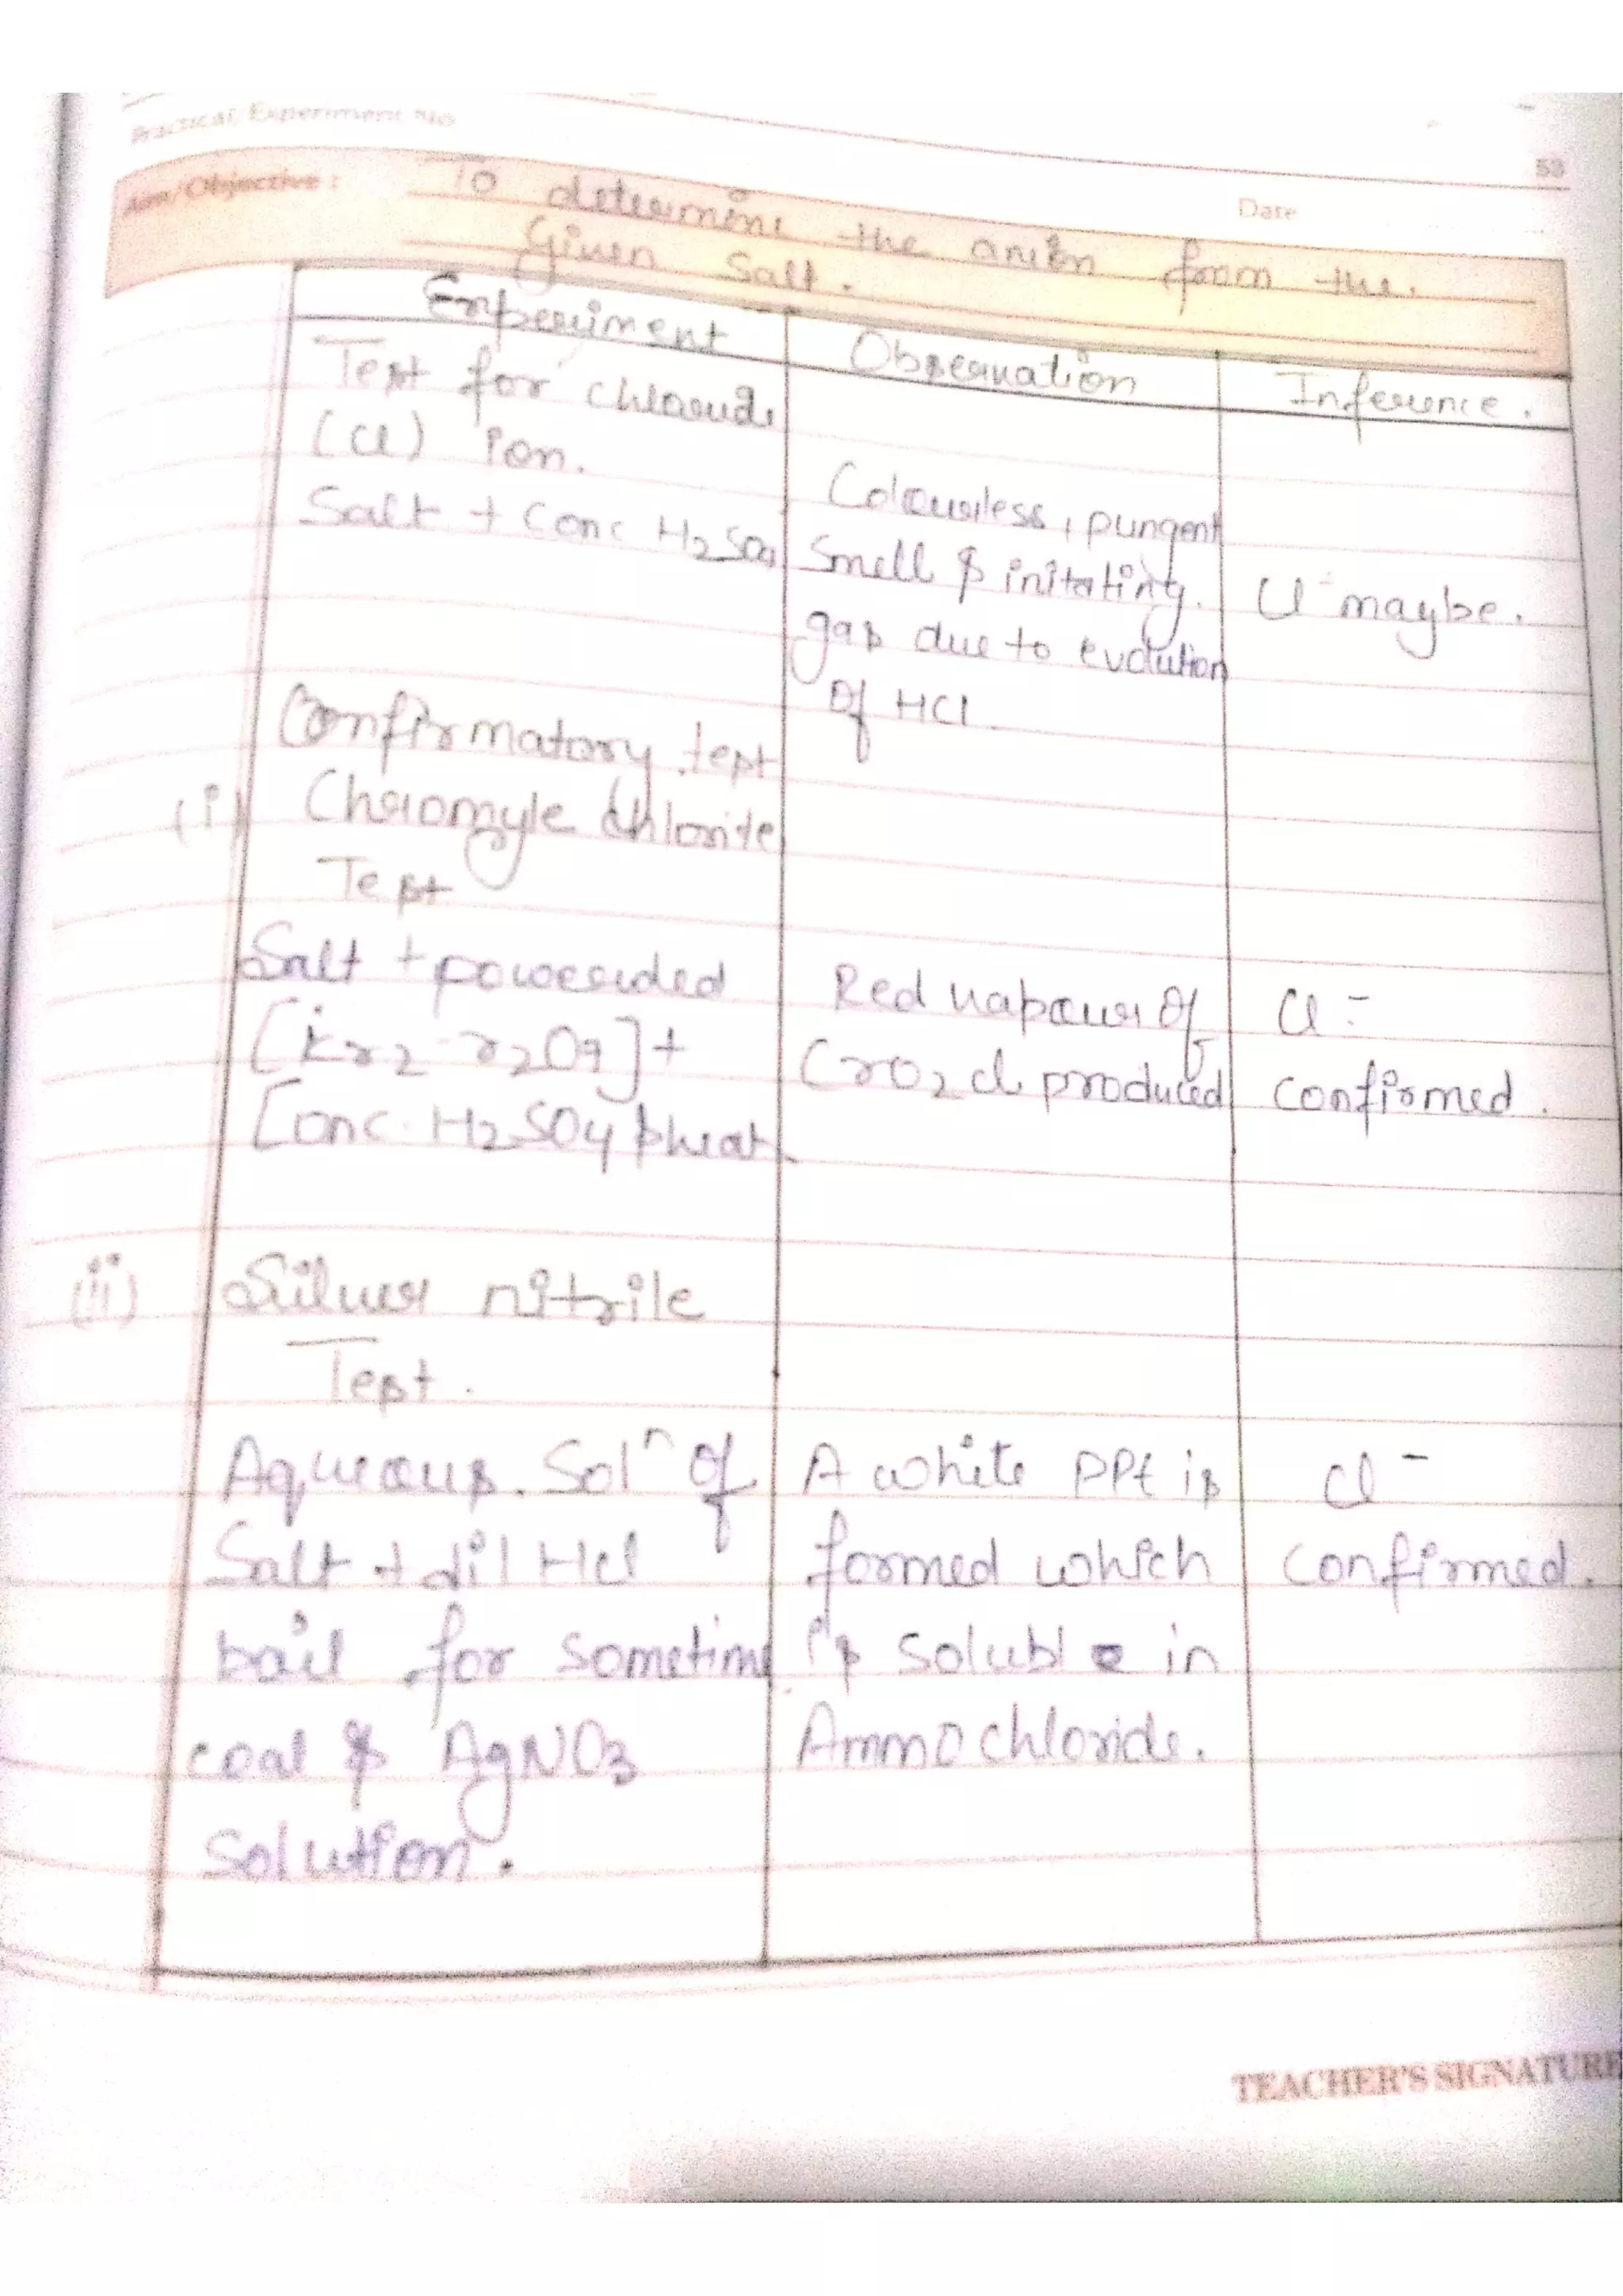 Practical Experiment No
53
Date
Aim/Objective : To determine the anion from the.
Given Salt.
Experiment
Observation
Inference.
Test for chloride
(Cl) ion.
Salt + Conc H2SO4
Colourless, pungent
Smell & irritating.
gas due to evolution
of HCl
Cl⁻ maybe.
Confirmatory test
(i) Chromyle chloride
Test
Salt + powdered
[kr2 r2O7] +
Conc. H2SO4 & heat
Red vapour of
CrO2 cl produced
Cl⁻
confirmed.
(ii) Silver nitrile
Test.
Aqueous. Solⁿ of
Salt + dil Hcl
boil for sometime
coal & AgNO3
Solution.
A white PPt is
formed which
is soluble in
Ammo chloride.
Cl⁻
confirmed.
TEACHER'S SIGNATURE